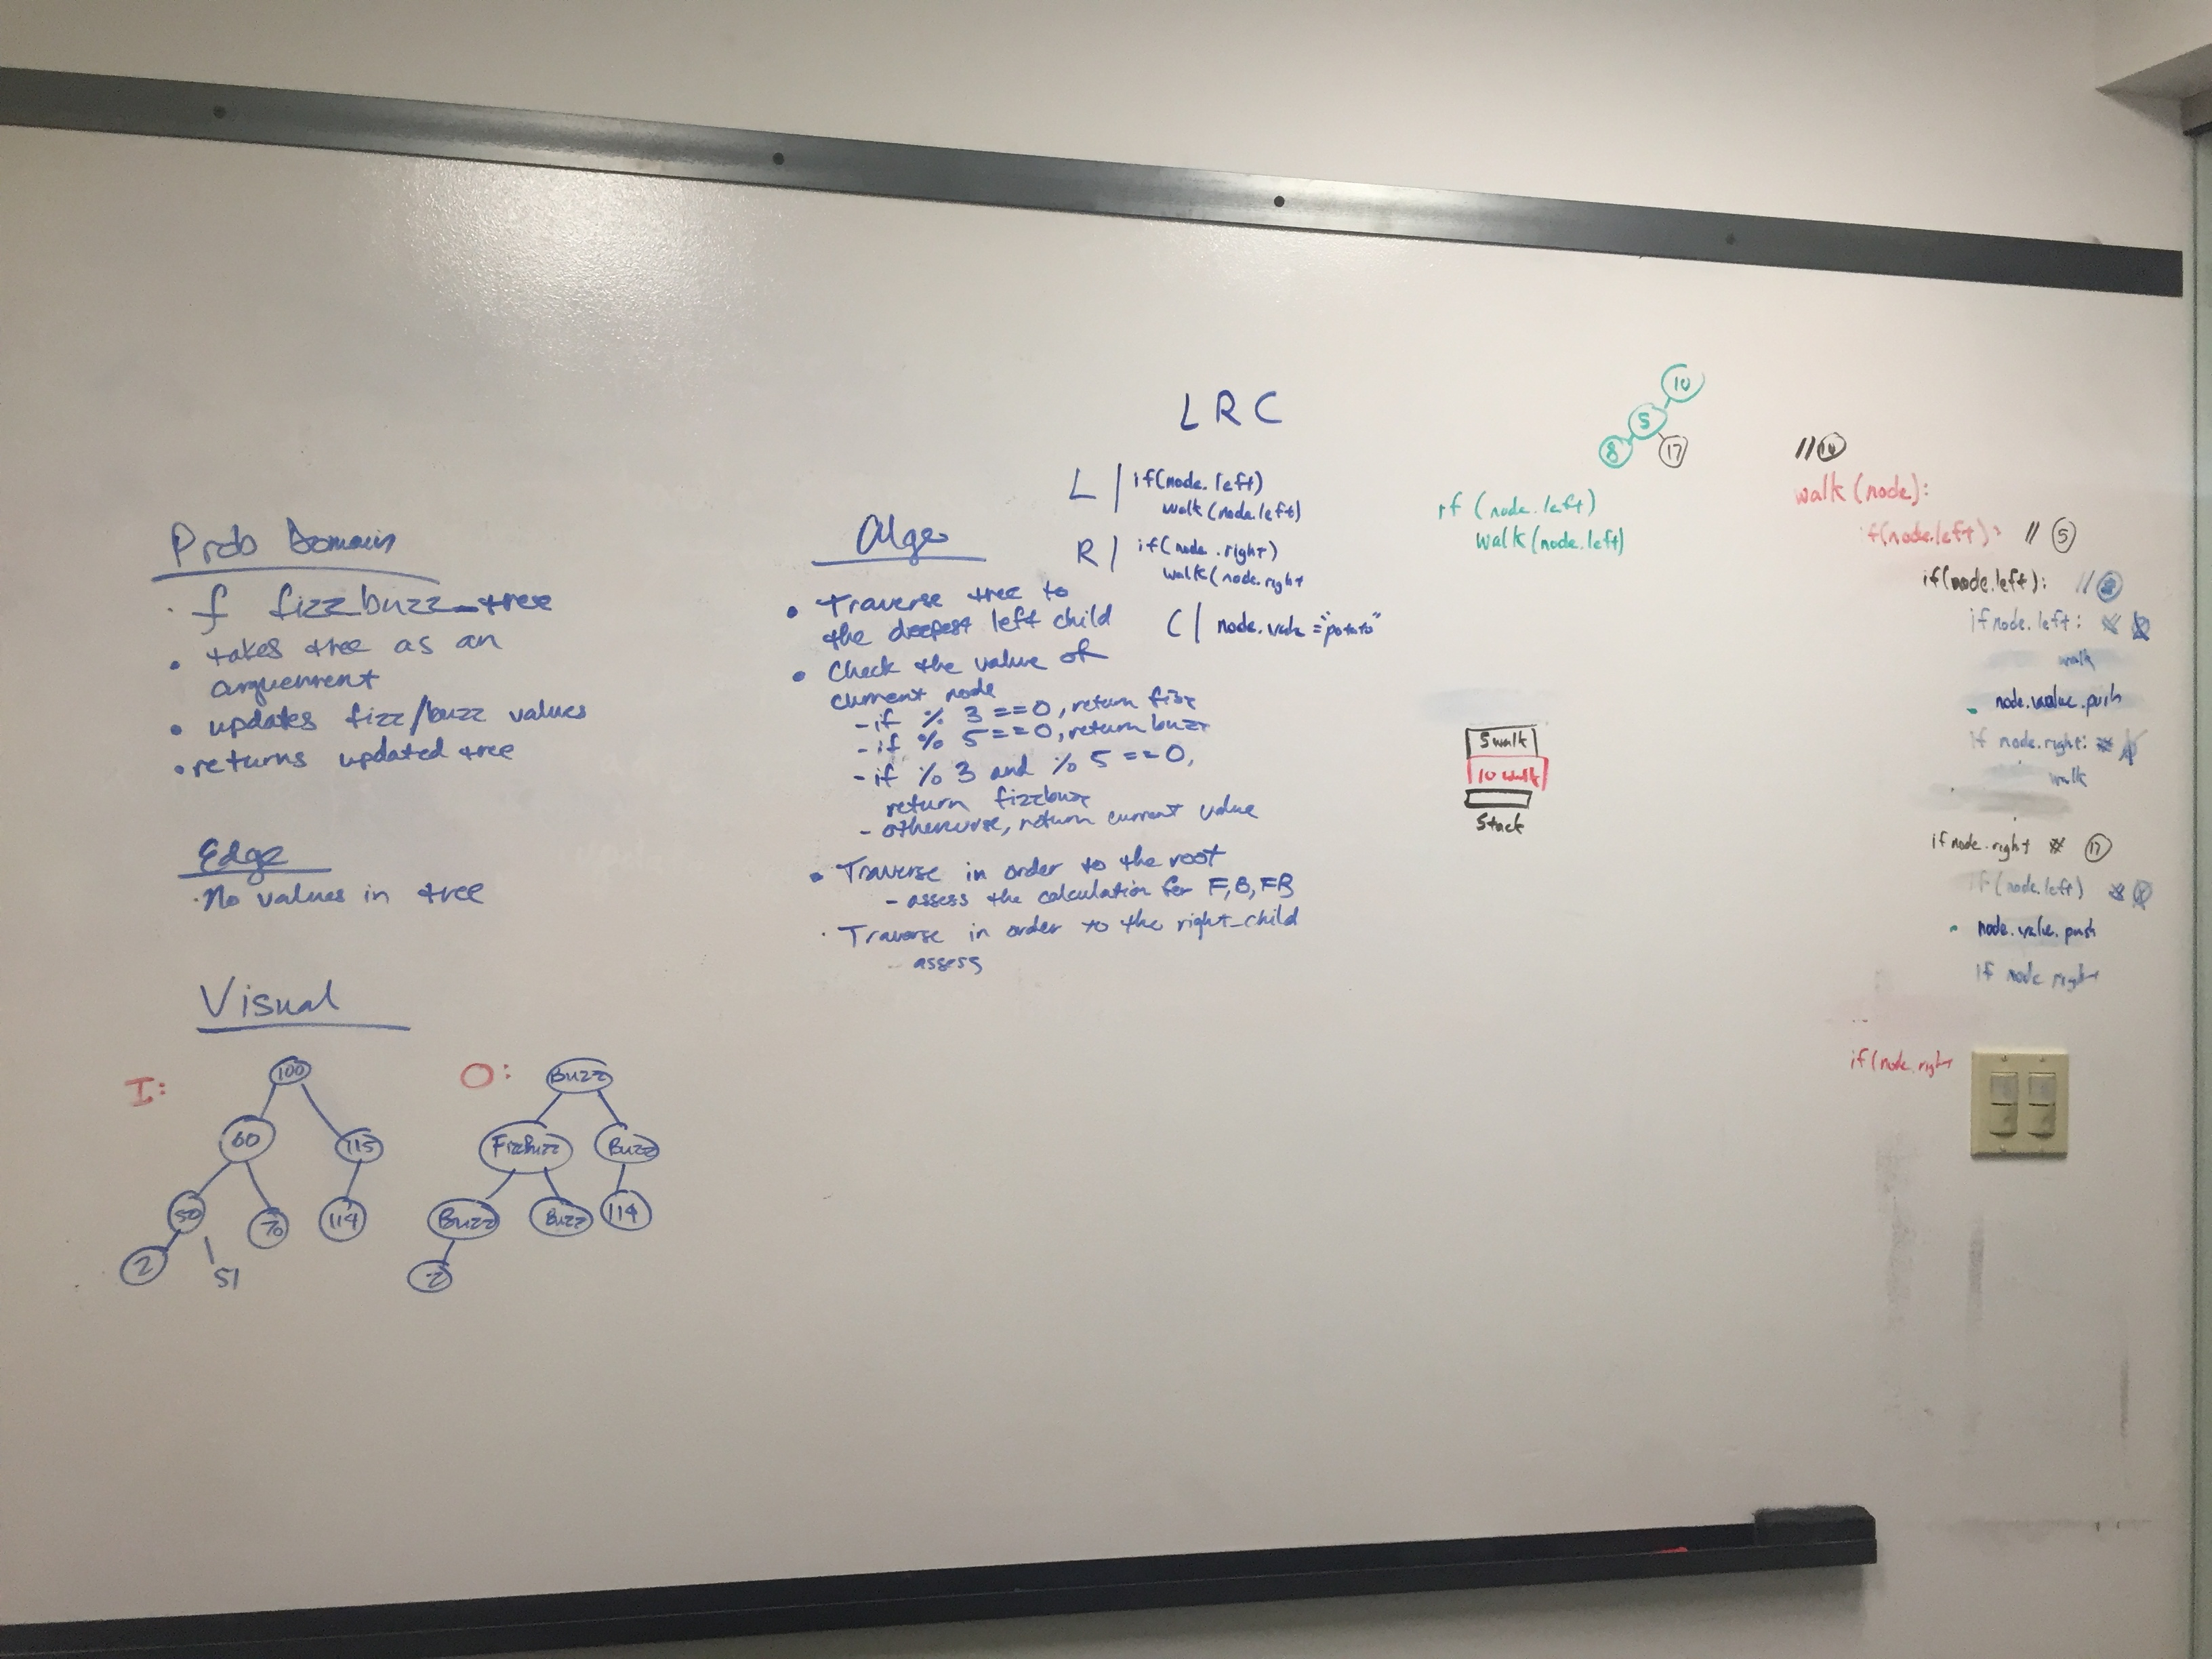 Prob Domain
· f fizzbuzz_tree
• takes tree as an
arguement
• updates fizz/buzz values
• returns updated tree
Edge
· No values in tree
Visual
I:
100
60
115
50
70
114
2
51
O:
Buzz
Fizzbuzz
Buzz
Buzz
Buzz
114
2
Algo
• Traverse tree to
the deepest left child
• Check the value of
current node
- if % 3 == 0, return fizz
- if % 5 == 0, return buzz
- if % 3 and % 5 == 0,
return fizzbuzz
- otherwise, return current value
• Traverse in order to the root
- assess the calculation for F, B, FB
· Traverse in order to the right_child
- assess
L R C
L | if(node.left)
walk(node.left)
R | if(node.right)
walk(node.right
C | node.value = "potato"
10
5
8
17
if (node.left)
walk(node.left)
5 walk
10 walk
Stack
// 10
walk(node):
if(node.left): // 5
if(node.left): // 8
if node.left:
walk
node.value.push
if node.right:
walk
if node.right 17
if(node.left)
node.value.push
if node right
if(node.right